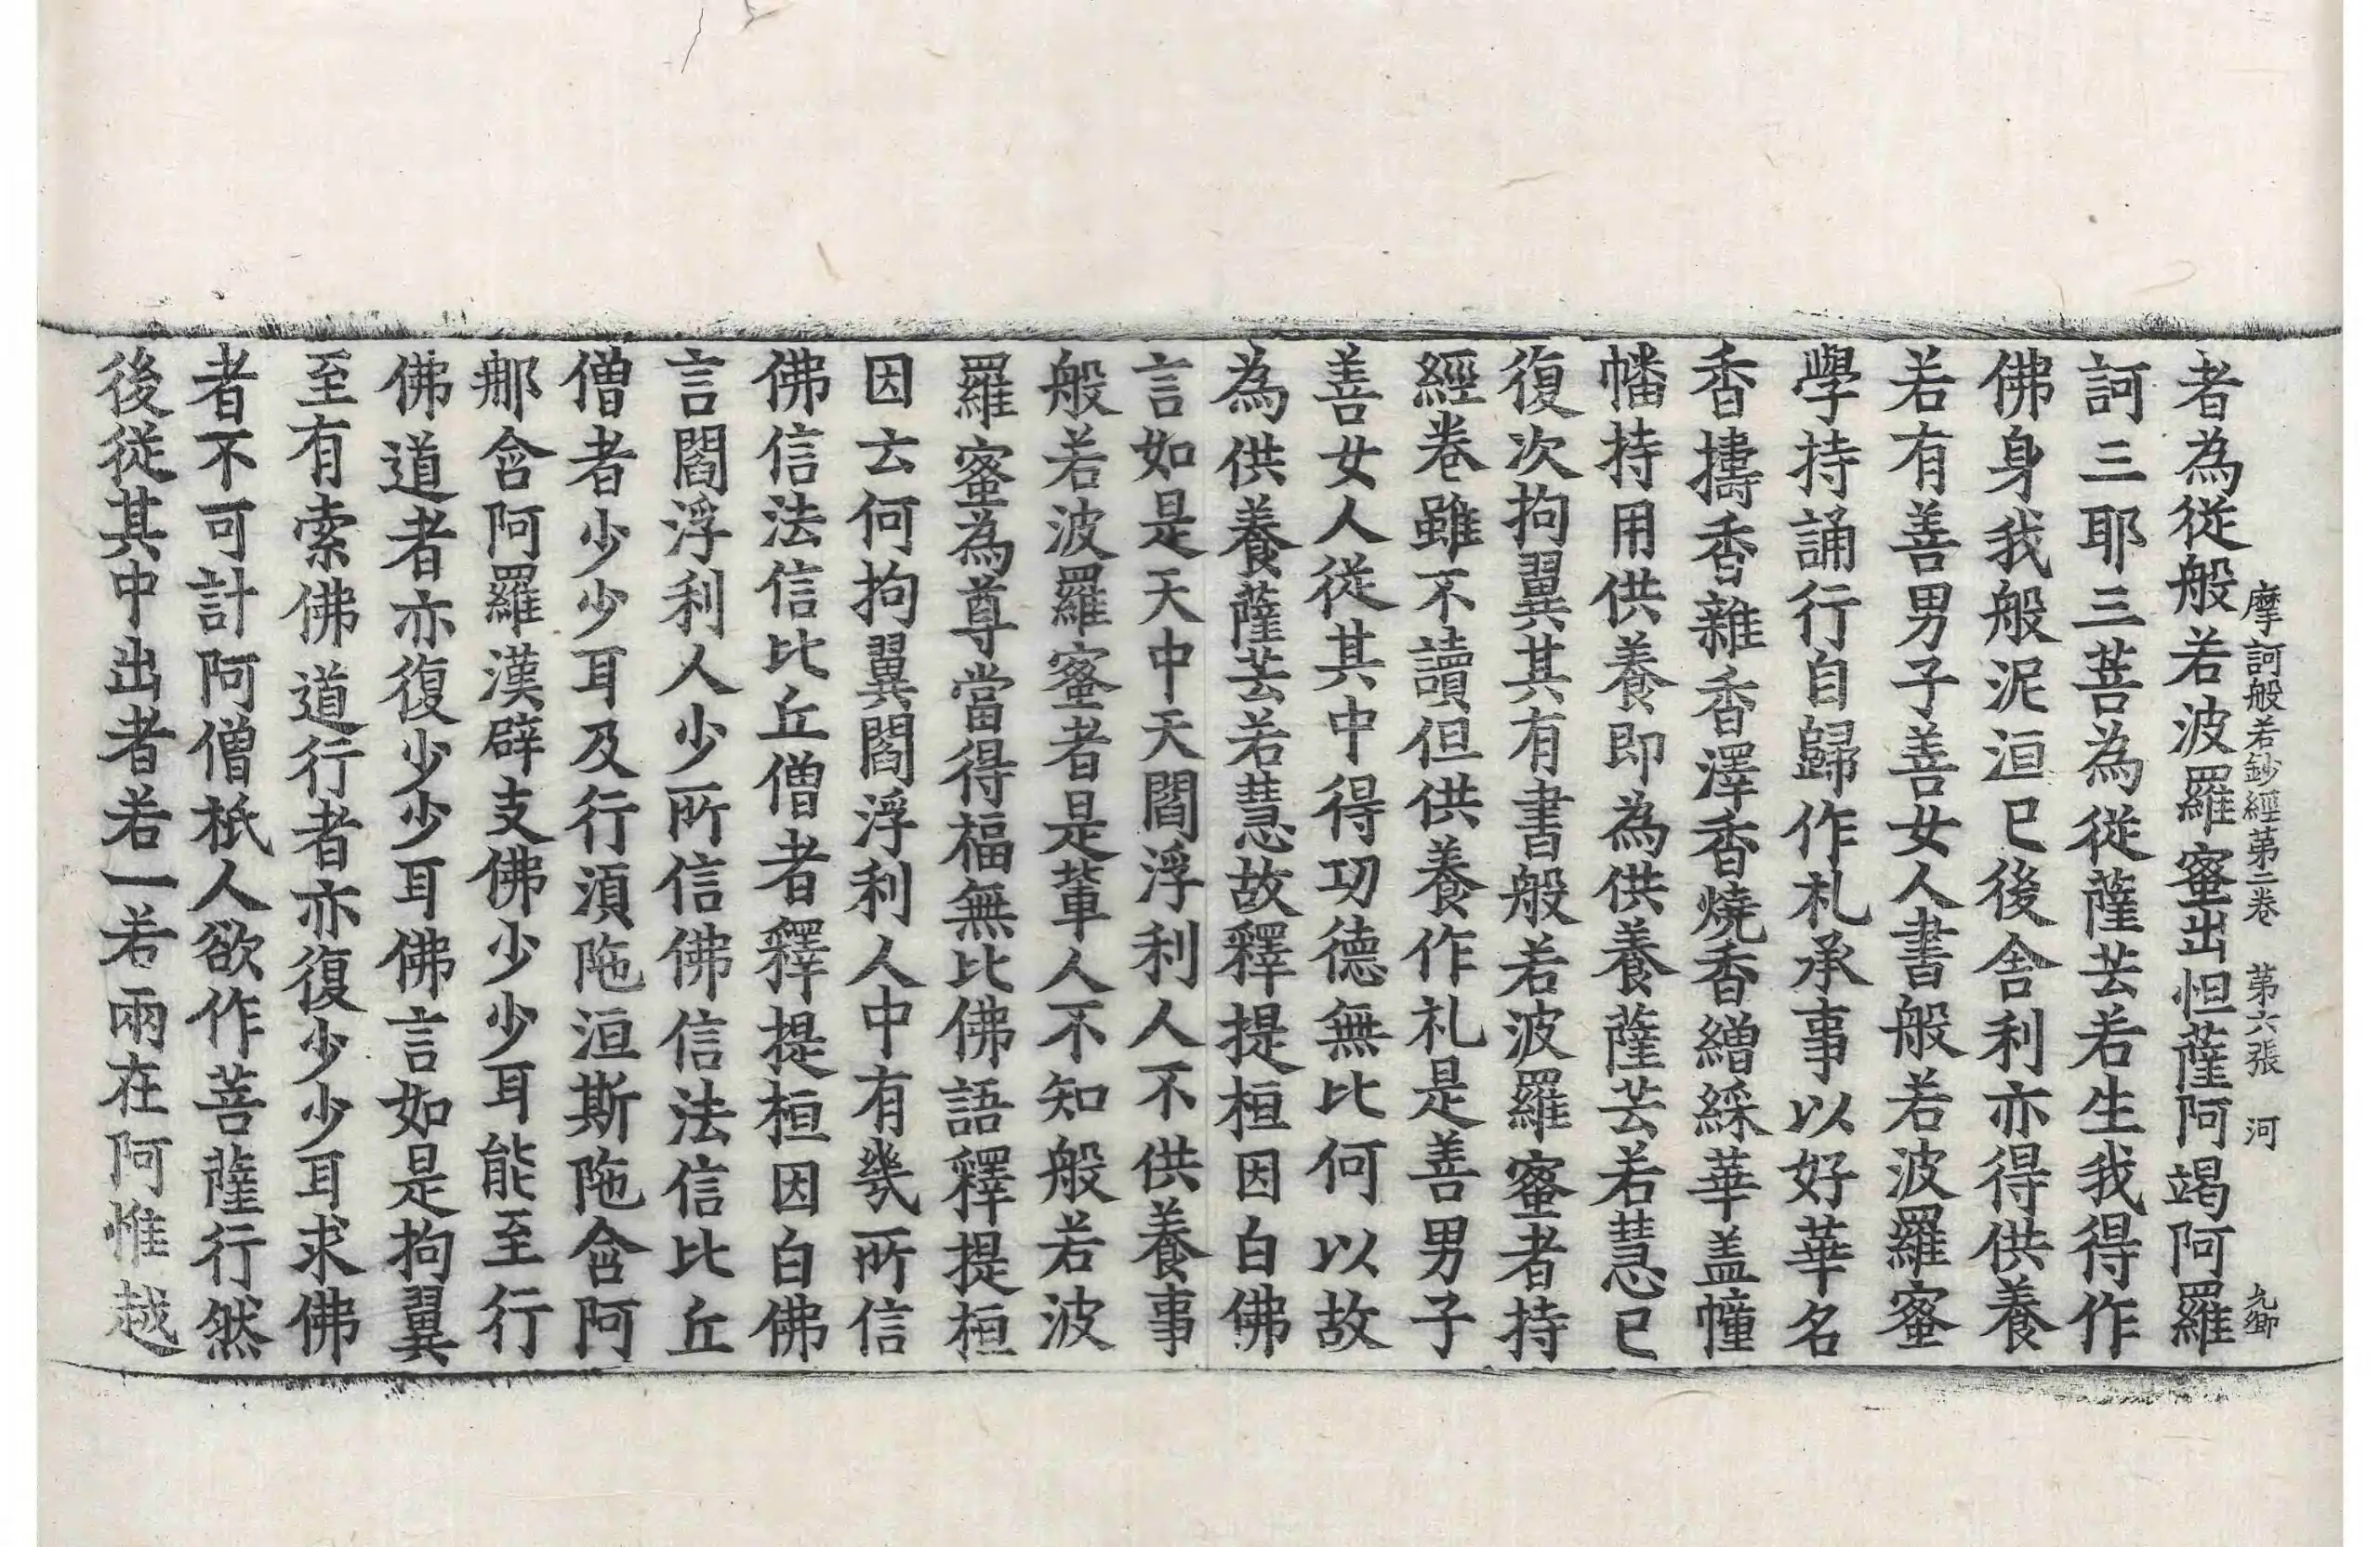 摩訶般若鈔經第二卷　第六張　河　允卿
者為從般若波羅蜜出怛薩阿竭阿羅
訶三耶三菩為從薩芸若生我得作
佛身我般泥洹已後舍利亦得供養
若有善男子善女人書般若波羅蜜
學持誦行自歸作礼承事以好華名
香擣香雜香澤香燒香繒綵華盖幢
幡持用供養即為供養薩芸若慧已
復次拘翼其有書般若波羅蜜者持
經卷雖不讀但供養作礼是善男子
善女人從其中得功德無比何以故
為供養薩芸若慧故釋提桓因白佛
言如是天中天閻浮利人不供養事
般若波羅蜜者是軰人不知般若波
羅蜜為尊當得福無比佛語釋提桓
因云何拘翼閻浮利人中有㡬所信
佛信法信比丘僧者釋提桓因白佛
言閻浮利人少所信佛信法信比丘
僧者少少耳及行湏陁洹斯陁含阿
那含阿羅漢辟支佛少少耳能至行
佛道者亦復少少耳佛言如是拘翼
至有索佛道行者亦復少少耳求佛
者不可計阿僧祇人欲作菩薩行然
後從其中出者若一若兩在阿惟越